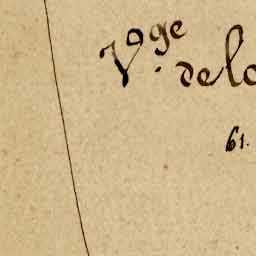 Vge de la
61.